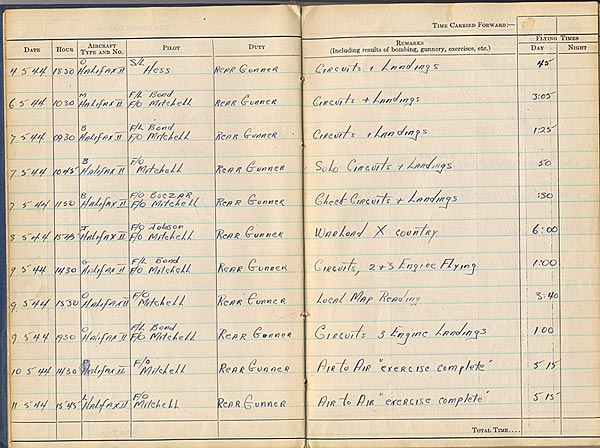 TIME CARRIED FORWARD:—
DATE HOUR AIRCRAFT TYPE AND NO. PILOT DUTY REMARKS (Including results of bombing, gunnery, exercises, etc.) FLYING TIMES DAY NIGHT
O S/L
4 5 44 1830 HALIFAX II Hess REAR GUNNER CIRCUITS + LANDINGS 45
M F/L Bond
6 5 44 1030 HALIFAX II F/O Mitchell REAR GUNNER CIRCUITS + LANDINGS 3:05
B F/L Bond
7 5 44 0930 HALIFAX II F/O Mitchell REAR GUNNER CIRCUITS + LANDINGS 1:25
B F/O
7 5 44 1045 HALIFAX II Mitchell REAR GUNNER Solo CIRCUITS + LANDINGS 50
B F/O
7 5 44 1150 HALIFAX II F/O Mitchell REAR GUNNER Check CIRCUITS + LANDINGS :30
J F/O Jobson
8 5 44 1545 HALIFAX II F/O Mitchell REAR GUNNER WARLOAD X COUNTRY 6:00
F/L Bond
9 5 44 1430 HALIFAX II F/O Mitchell REAR GUNNER CIRCUITS, 2+3 Engine Flying 1:00
O F/O
9 5 44 1530 HALIFAX II Mitchell REAR GUNNER LOCAL MAP READING 3:40
O F/L Bond
9 5 44 1930 HALIFAX II F/O Mitchell REAR GUNNER CIRCUITS 3 Engine LANDINGS 1 00
F/O
10 5 44 1430 HALIFAX II Mitchell REAR GUNNER AIR to AIR "exercise complete" 5 15
L F/O
11 5 44 1545 HALIFAX II Mitchell REAR GUNNER AIR to AIR "exercise complete" 5 15
TOTAL TIME....